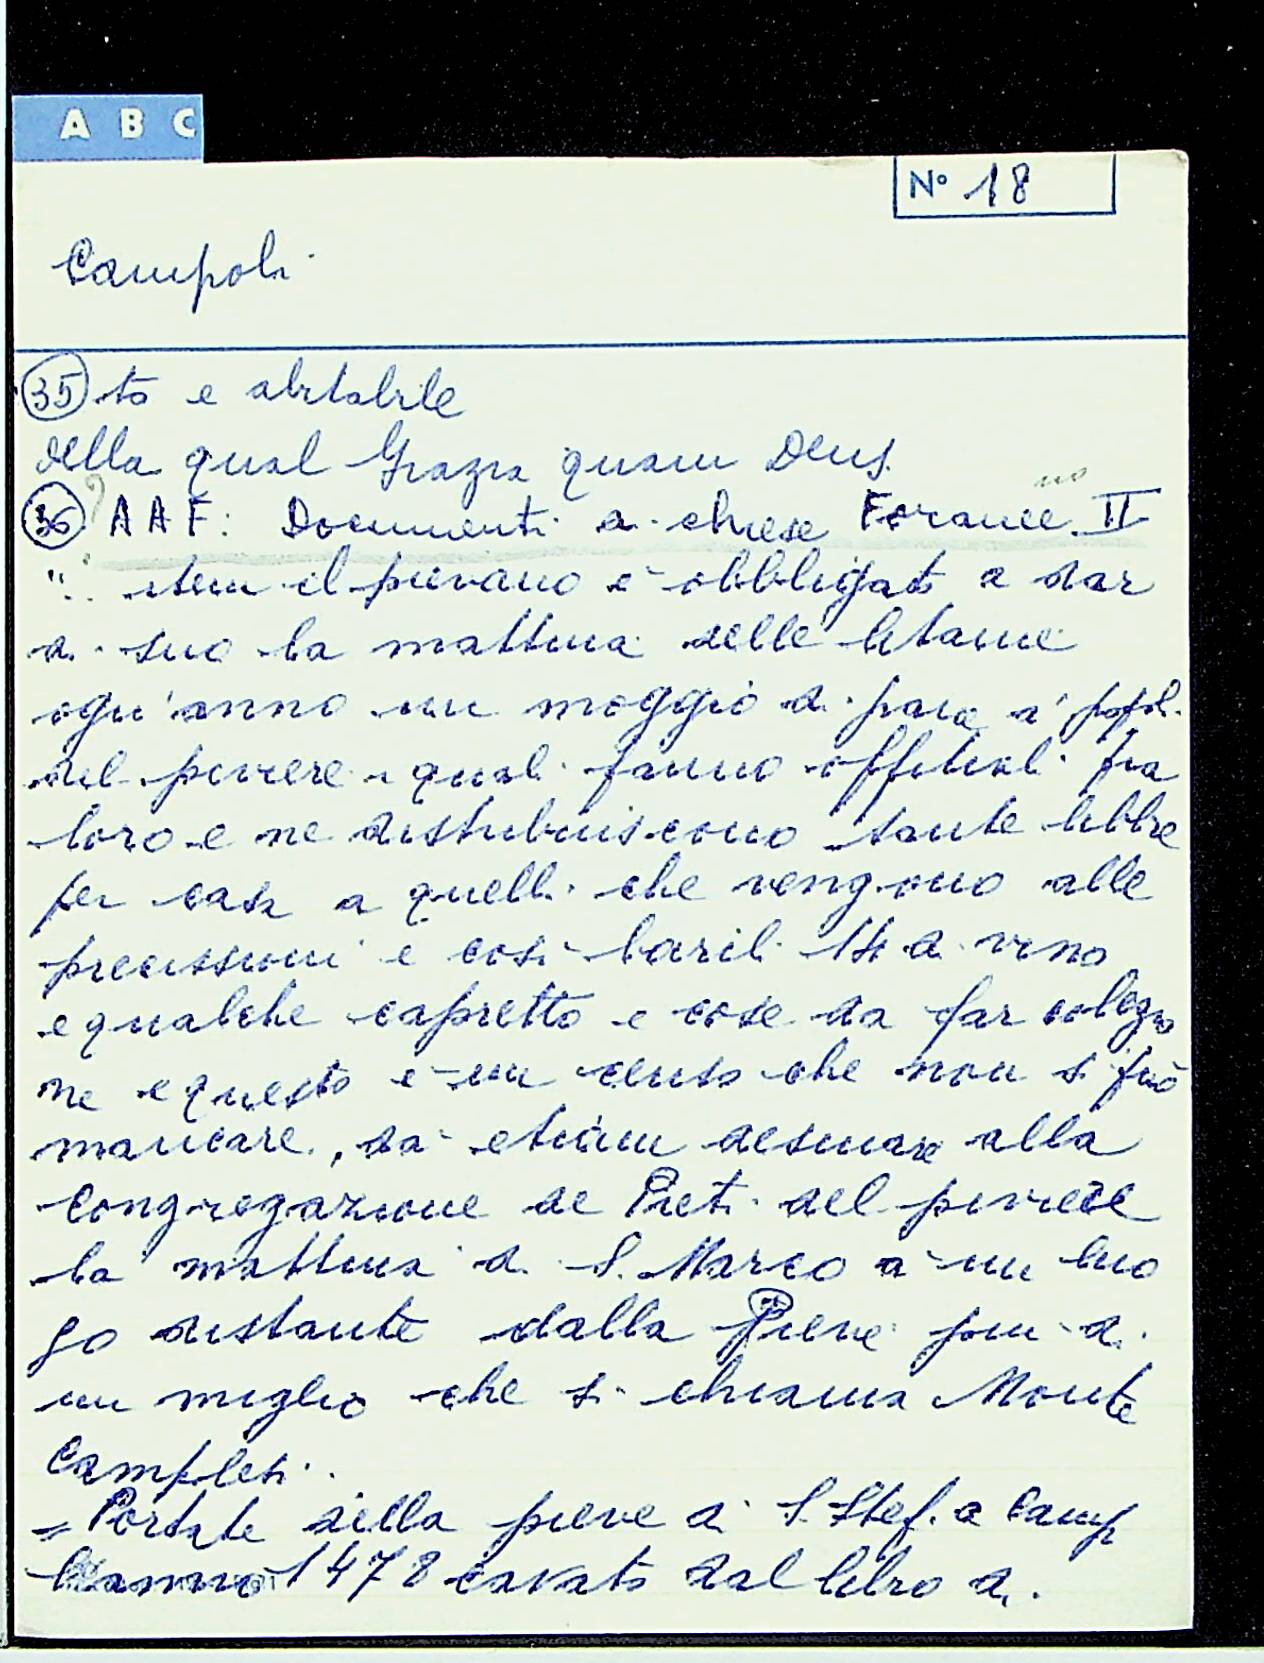 A B C
N° 18
Campoli
35 to e abitabile
della qual Grazia quam Deus.
no
36 A A F: Documenti di chiese Foranee II
"... item il pievano è obbligato a dar
di suo la mattina delle letanie
ogn'anno un moggio di pane a' popol.
del piviere i quali fanno offitiali fra
loro e ne distribuiscono tante libbre
per casa a quelli che vengono alle
precissioni e così barili 14 di vino
e qualche capretto e cose da far colezio
ne e questo è un censo che non si può
mancare, da etiam desinare alla
congregazione de Preti del piviere
la mattina di S. Marco a un luo
go distante dalla Pieve più di
un miglio che si chiama Monte
Campolesi.
= Portate della pieve di S. Stef. a Camp
l'anno 1478 cavato dal libro di.